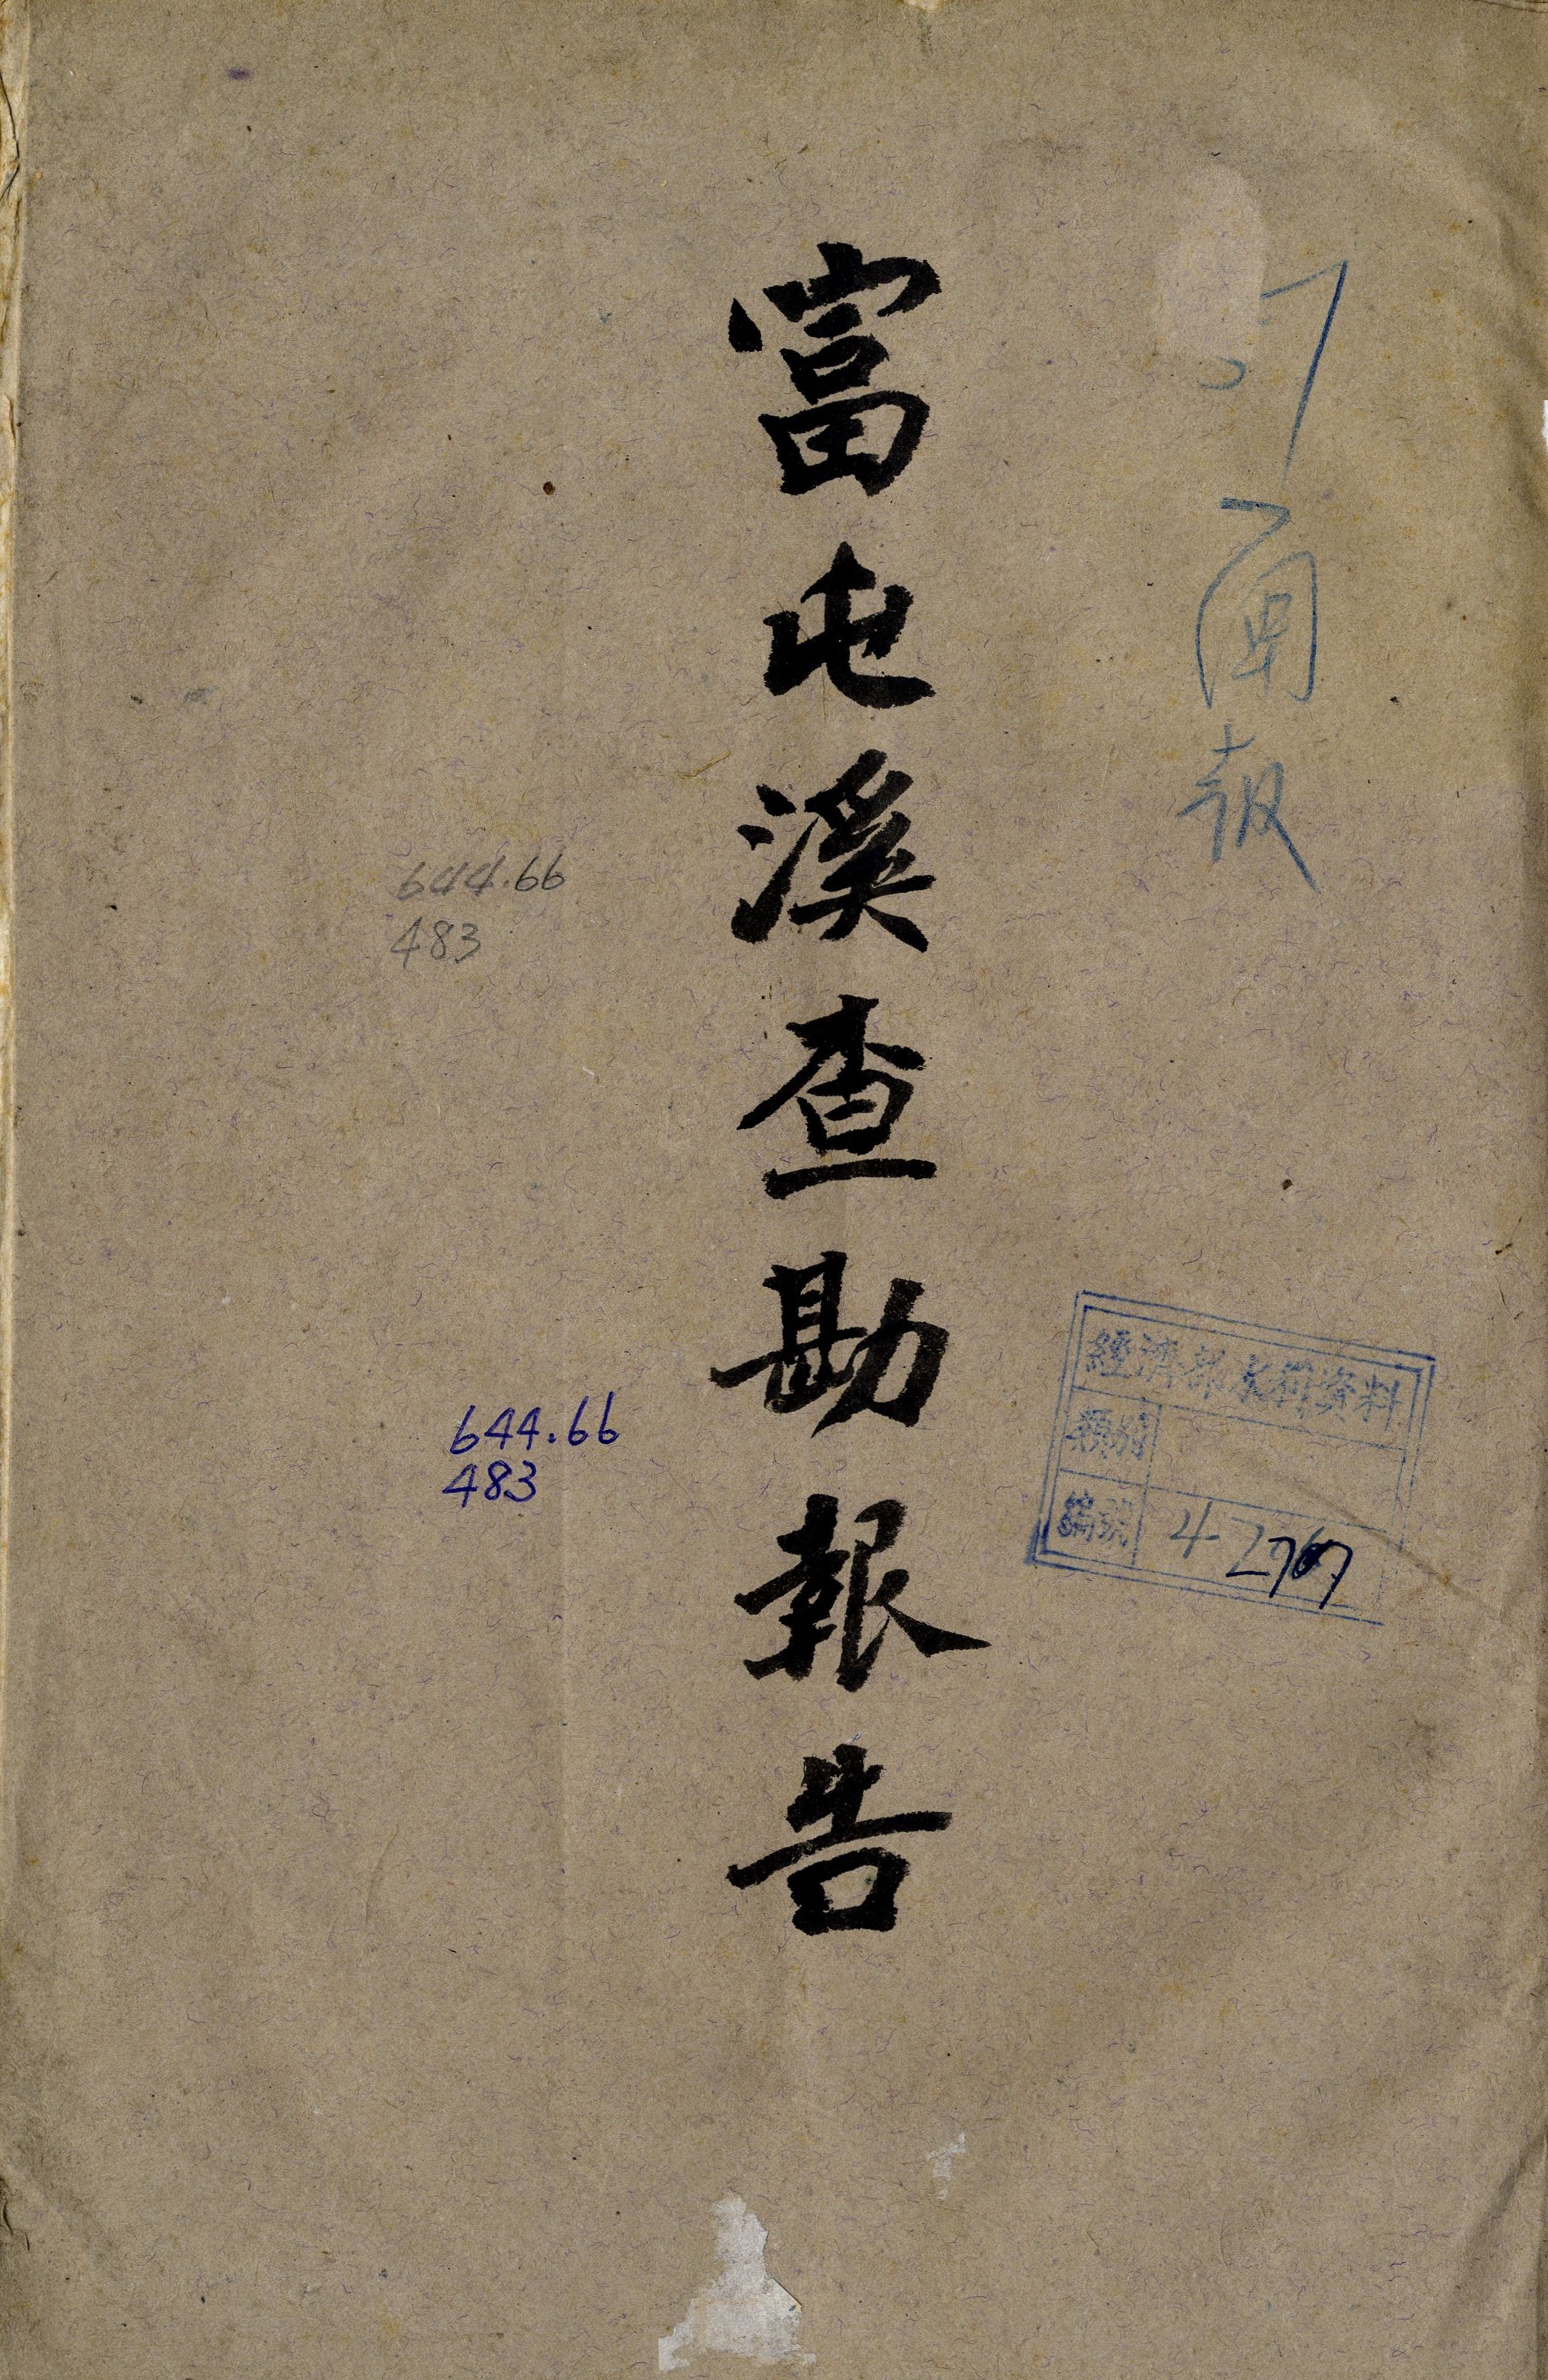 富屯溪查勘報告
644.66
483
644.66
483
經濟部水利資料
類別
編號 4-2767